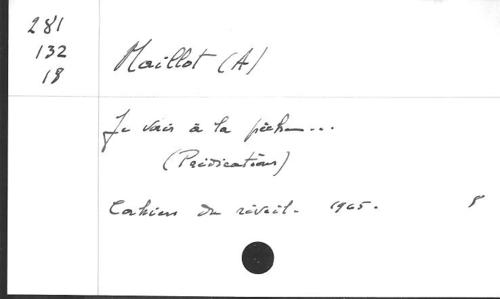 281
132
18
Maillot (A)
Je vais à la pêche...
(Prédications)
Cahiers du réveil. 1965.
8